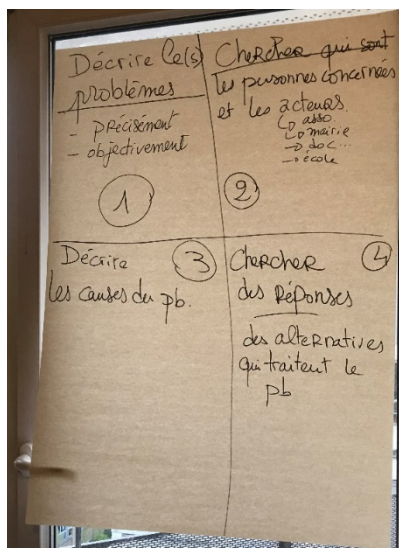 Décrire le(s)
problèmes
- précisément
- objectivement
1
Chercher qui sont
les personnes concernées
et les acteurs.
↳ asso.
↳ mairie
→ doc...
→ école
2
Décrire
les causes du pb.
3
Chercher
des Réponses
des alternatives
qui traitent le
pb
4